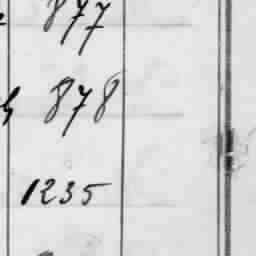 877
878
1235